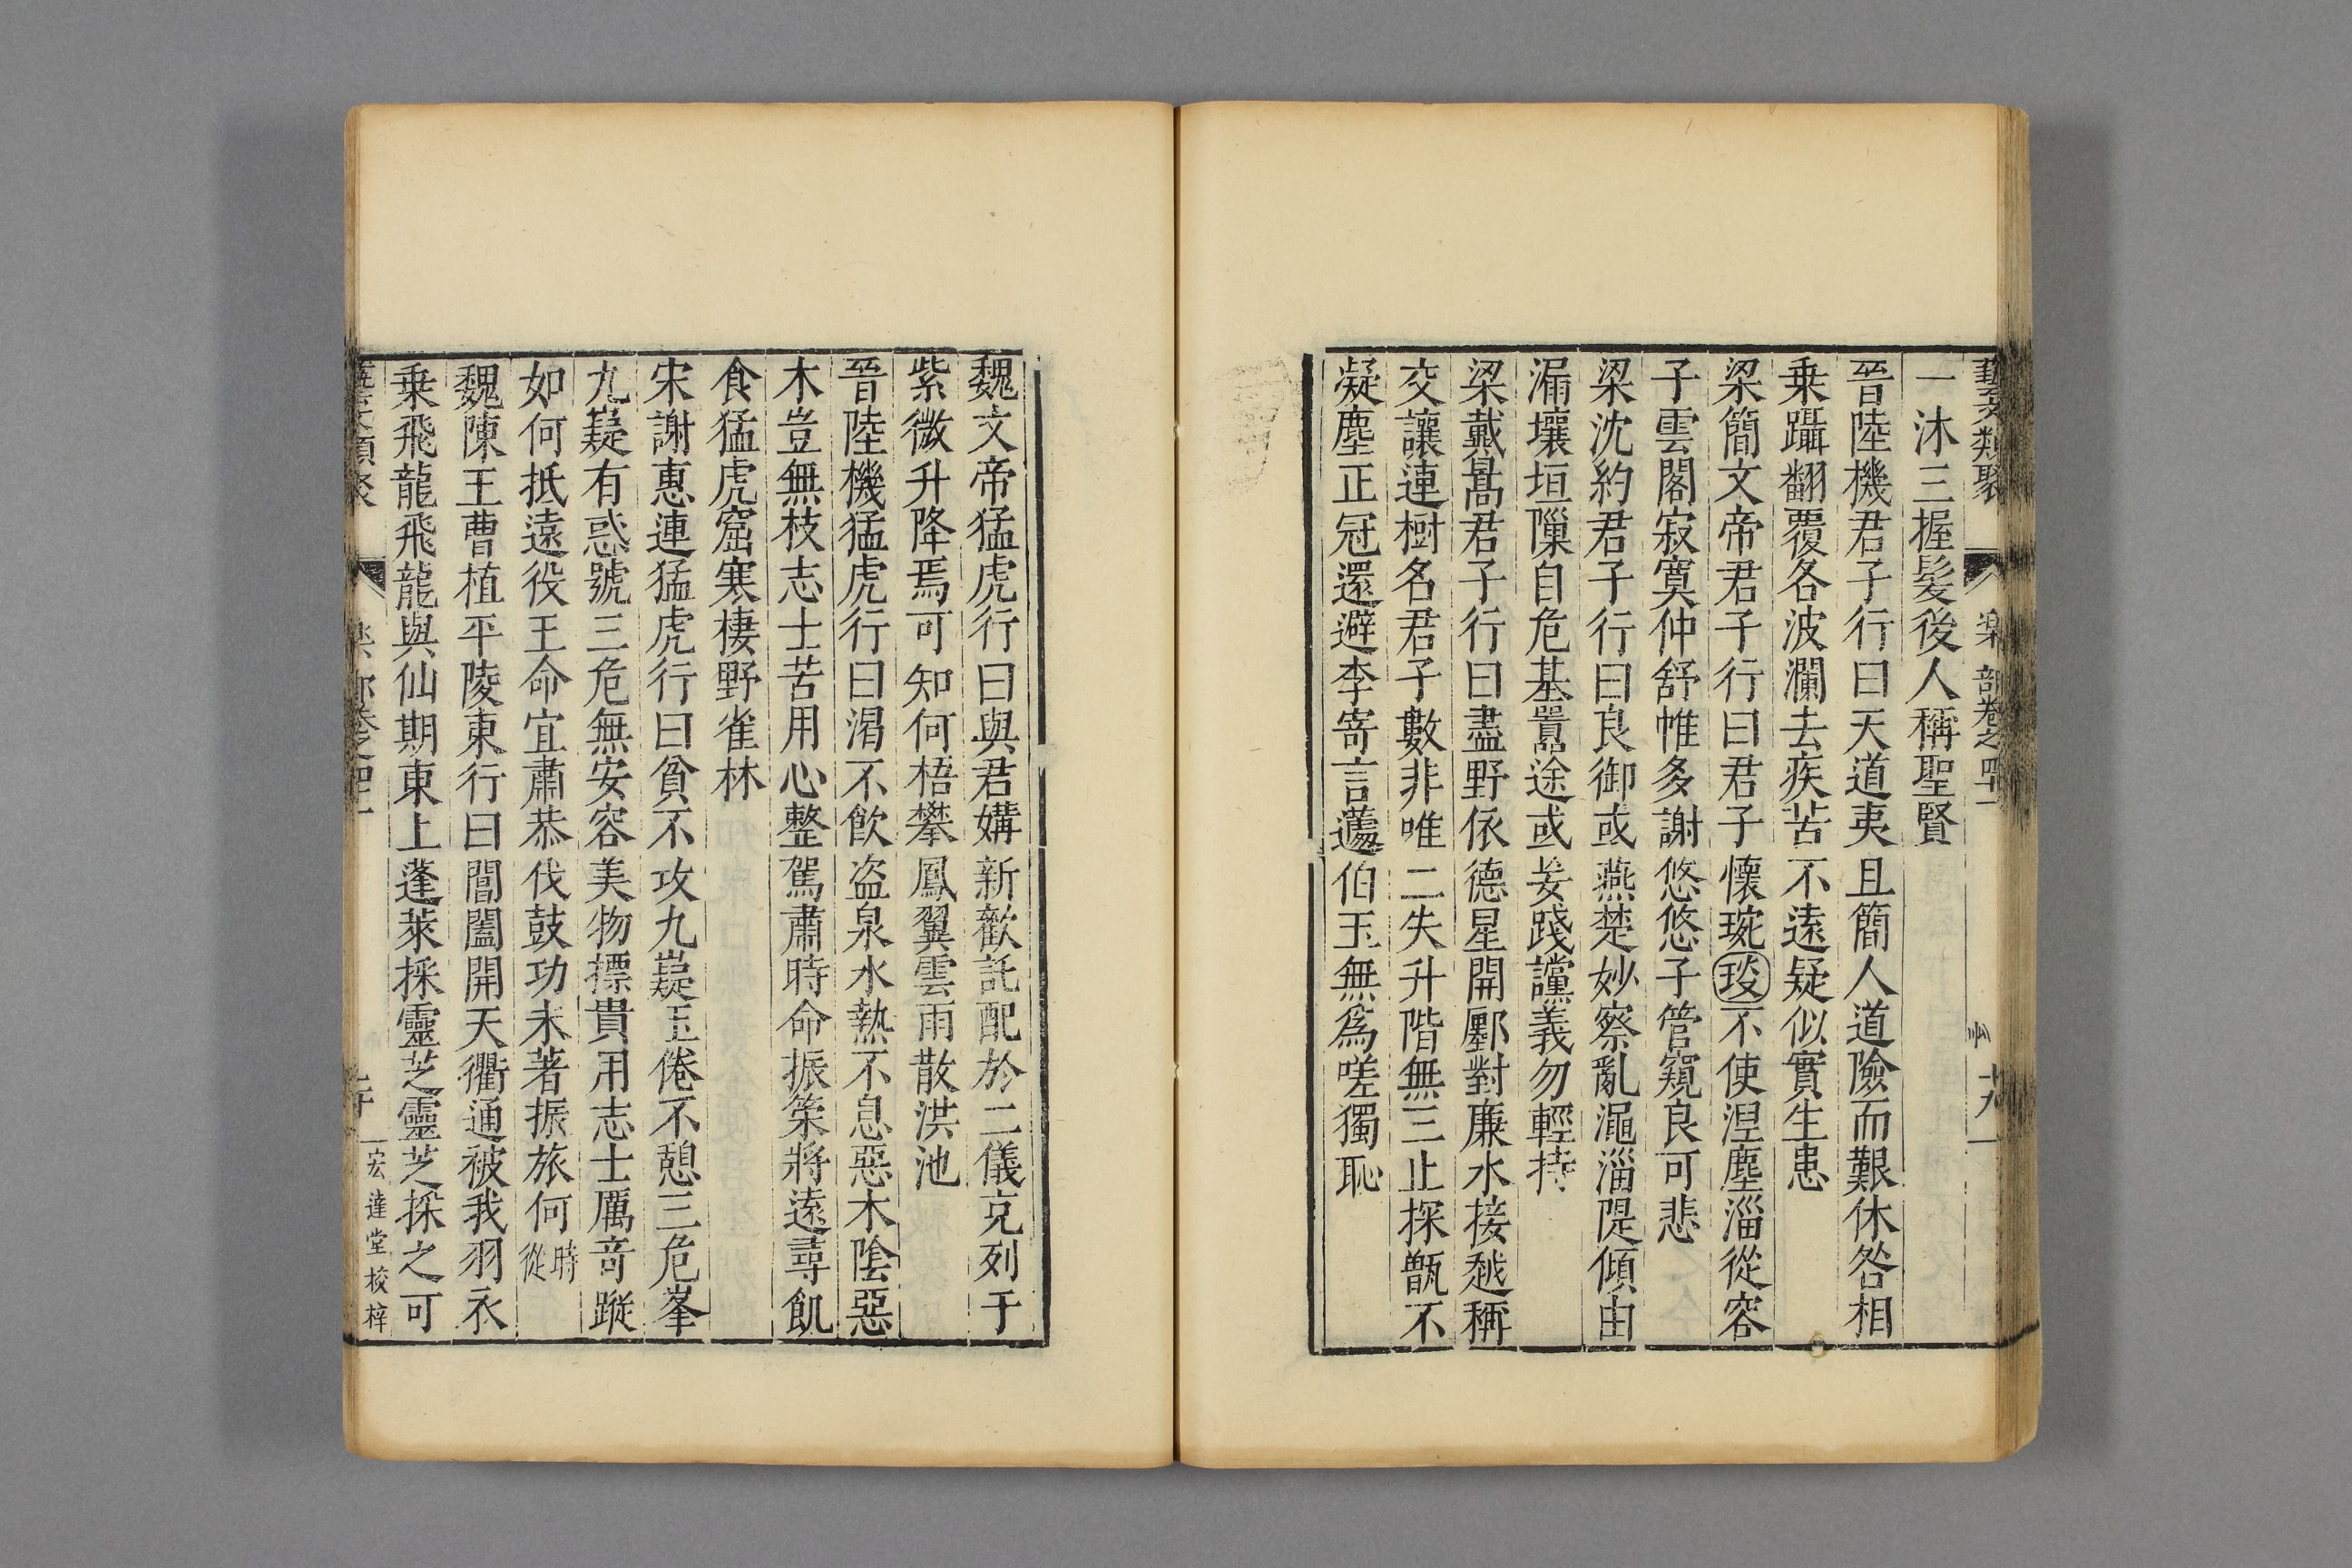 藝文類聚 樂部卷之四十一 十九
一沐三握髮後人稱聖賢
晉陸機君子行曰天道夷且簡人道險而艱休咎相
乗躡翻覆各波瀾去疾苦不遠疑似實生患
梁簡文帝君子行曰君子懷琬琰不使涅塵淄從容
子雲閣寂寞仲舒帷多謝悠悠子管窺良可悲
梁沈約君子行曰良御或燕楚妙察亂澠淄隄傾由
漏壤垣隟自危基嚚途或妄踐讜義勿輕持
梁戴暠君子行曰盡野依德星開鄽對廉水接越稱
交讓連樹名君子數非唯二失升階無三止探甑不
凝塵正冠還避李寄言蘧伯玉無爲嗟獨恥
魏文帝猛虎行曰與君媾新歡託配於二儀克列于
紫微升降焉可知何梧攀鳳翼雲雨散洪池
晉陸機猛虎行曰渴不飲盗泉水熱不息惡木陰惡
木豈無枝志士苦用心整駕肅時命振䇿將遠尋飢
食猛虎窟寒棲野雀林
宋謝惠連猛虎行曰貧不攻九嶷玉倦不憩三危峯
九嶷有惑號三危無安容美物摽貴用志士厲奇蹤
如何抵遠役王命宜肅恭伐鼓功未著振旅何時從
魏陳王曹植平陵東行曰閶闔開天衢通被我羽衣
乗飛龍飛龍與仙期東上蓬萊採靈芝靈芝採之可
藝文類聚 樂部卷之四十一 二十 宏達堂校梓